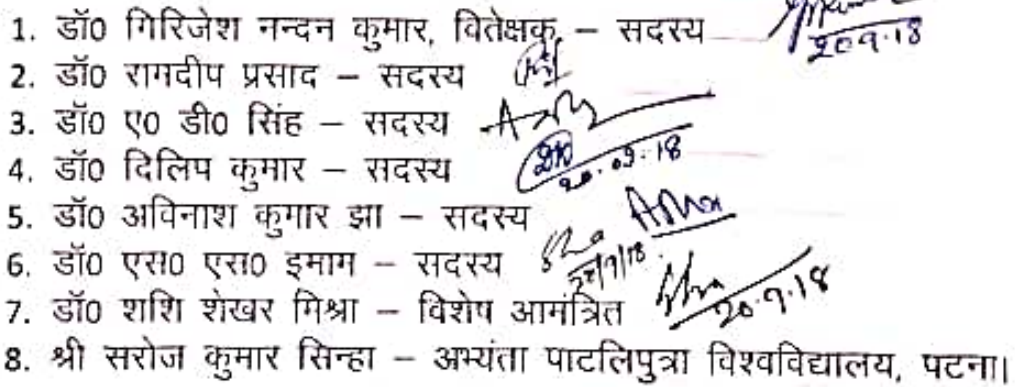 1. डॉ0 गिरिजेश नन्दन कुमार, वितेक्षक, – सदस्य 20.9.18
2. डॉ0 रामदीप प्रसाद – सदस्य
3. डॉ0 ए0 डी0 सिंह – सदस्य
4. डॉ0 दिलिप कुमार – सदस्य 20.09.18
5. डॉ0 अविनाश कुमार झा – सदस्य
6. डॉ0 एस0 एस0 इमाम – सदस्य
7. डॉ0 शशि शेखर मिश्रा – विशेष आमंत्रित 20.9.18
8. श्री सरोज कुमार सिन्हा – अभ्यंता पाटलिपुत्रा विश्वविद्यालय, पटना।